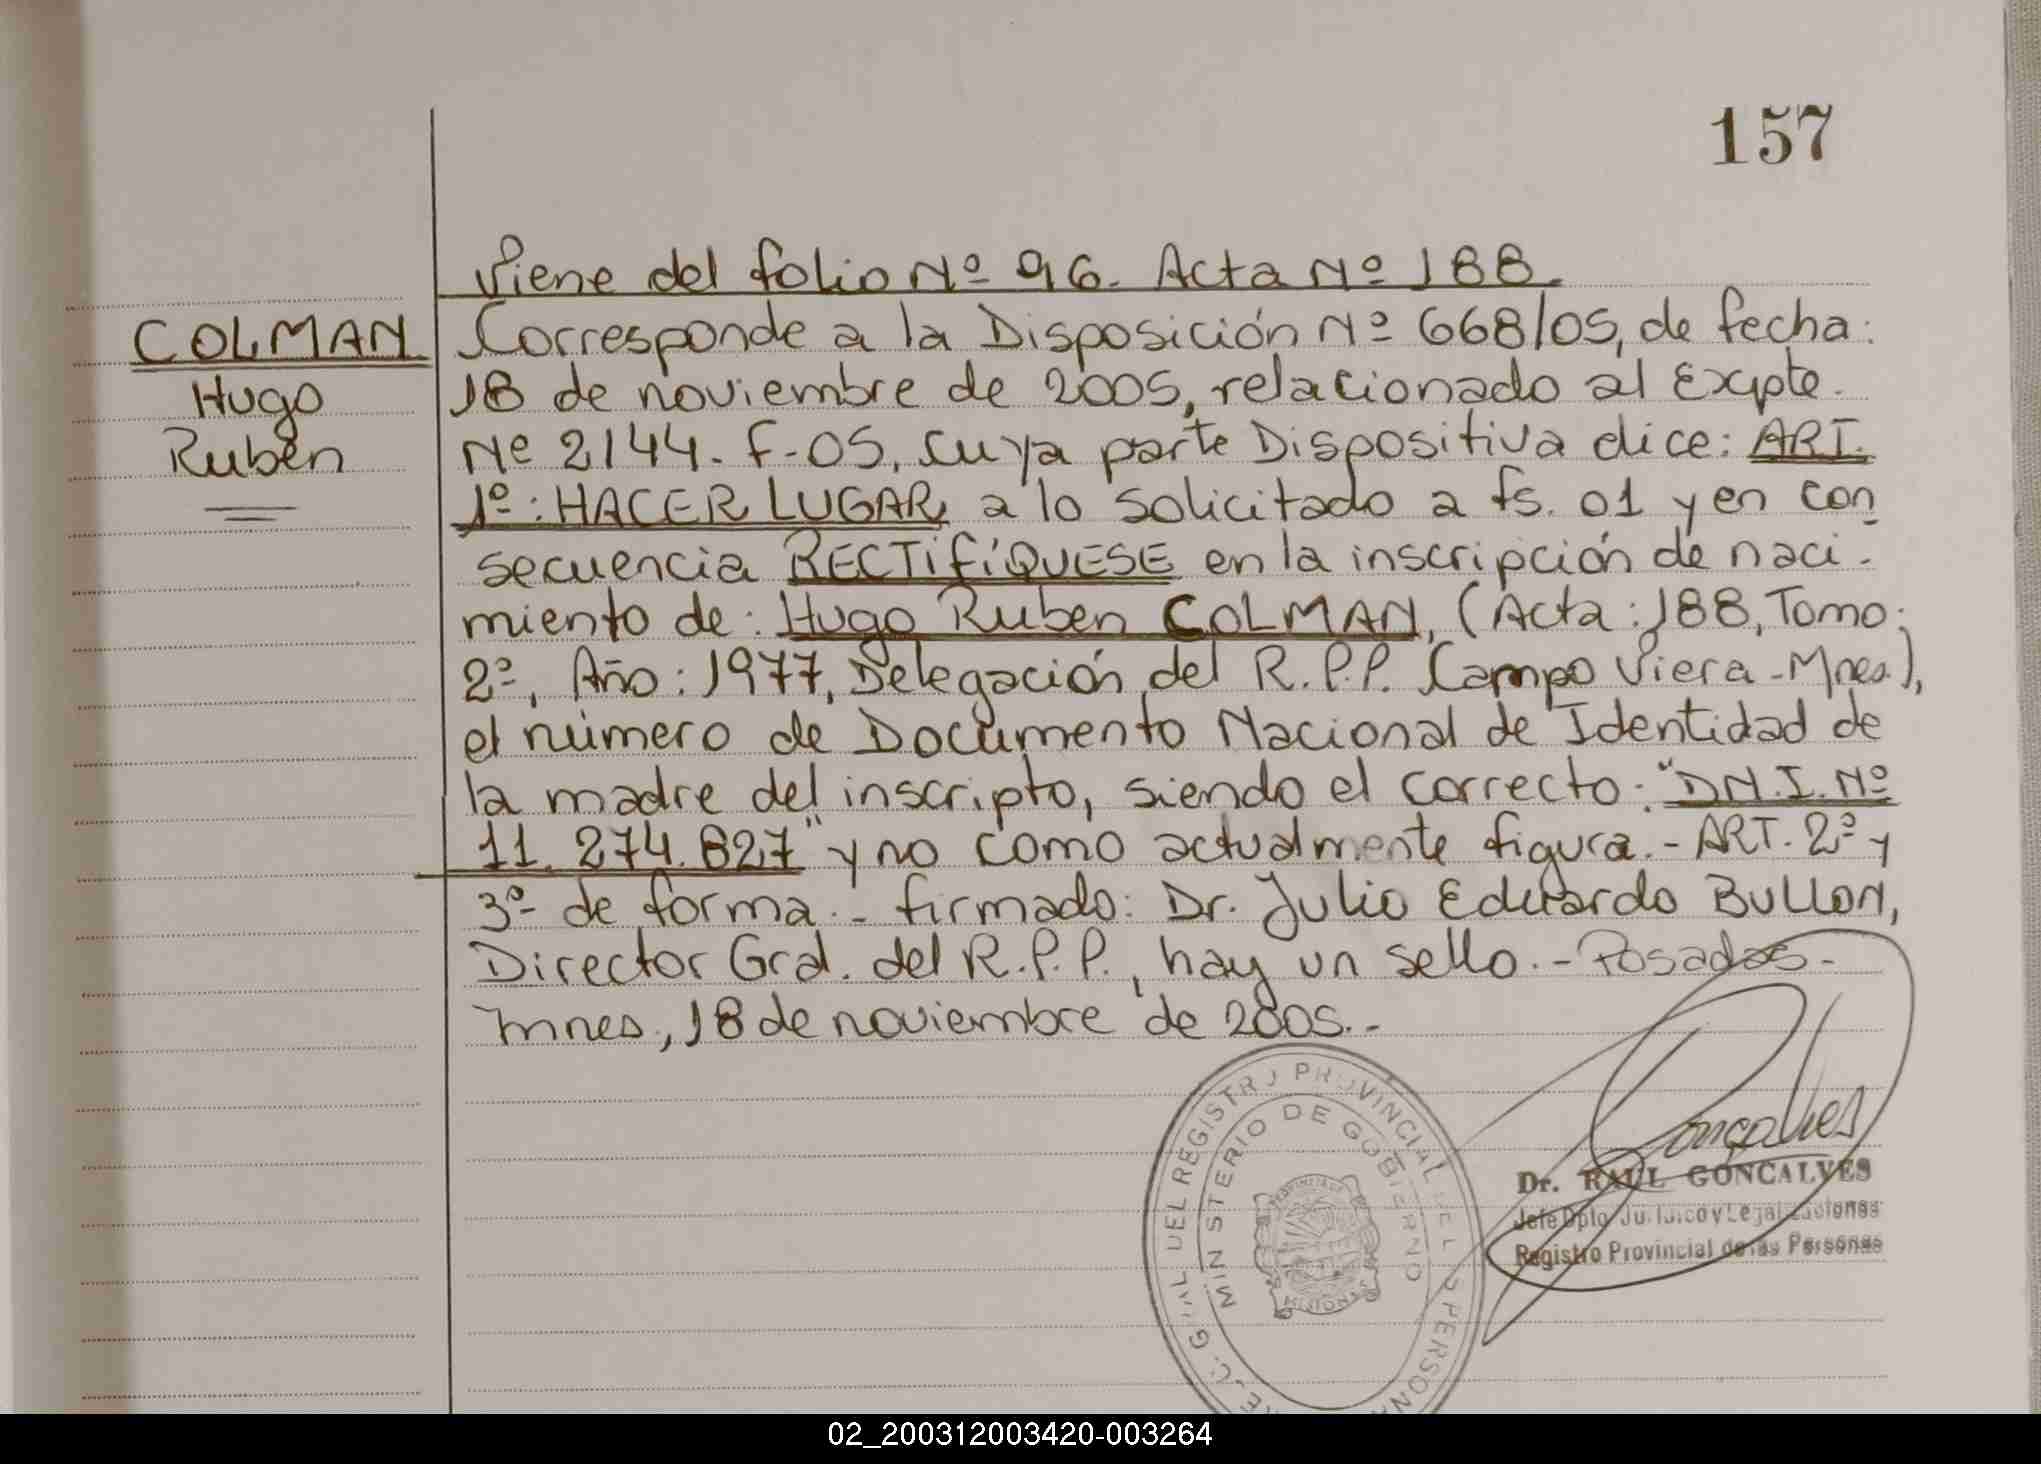 157
Viene del folio Nº 96. Acta Nº 188.
COLMAN
Hugo
Rubén
Corresponde a la Disposición Nº 668/05, de fecha:
18 de noviembre de 2005, relacionado al Expte.
Nº 2144. F-05, cuya parte Dispositiva dice: ART.
1º: HACER LUGAR, a lo solicitado a fs. 01 y en con
secuencia RECTIFÍQUESE en la inscripción de naci-
miento de: Hugo Ruben COLMAN, (Acta: 188, Tomo:
2º, Año: 1977, Delegación del R.P.P. Campo Viera - Mnes.),
el número de Documento Nacional de Identidad de
la madre del inscripto, siendo el correcto: "DN.I. Nº
11.274.827" y no como actualmente figura.- ART. 2º y
3º de forma.- firmado: Dr. Julio Eduardo BULLON,
Director Gral. del R.P.P., hay un sello.- Posadas-
mnes, 18 de noviembre de 2005.-
DEL REGISTRO PROVINCIAL DE L S PERSONA
MINISTERIO DE GOBIERNO
MISIONES
Gonçalves
Dr. RAUL GONCALVES
Jefe Dpto. Jurídico y Legalizaciones
Registro Provincial de las Personas
02_200312003420-003264